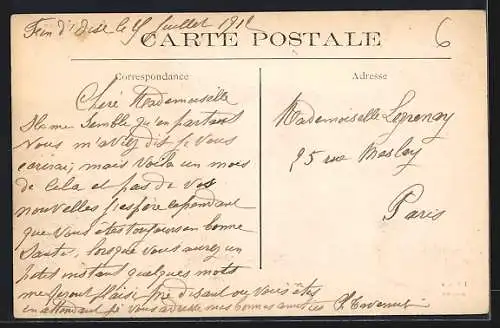 d'Oise le 5 Juillet 1912
CARTE POSTALE
6
Correspondance
Adresse
Chère Mademoiselle
Il me semble qu'en partant
Vous m'aviez dit je vous
écrirai, mais voila un mois
de cela et pas de vos
nouvelles j'espère cependant
que vous êtes toujours en bonne
Santé, lorsque vous aurez un
petit instant quelques mots
me feront plaisir me disant ou vous êtes
en attendant je vous adresse mes bonnes amitiés
Mademoiselle Legrenay
95 rue Meslay
Paris